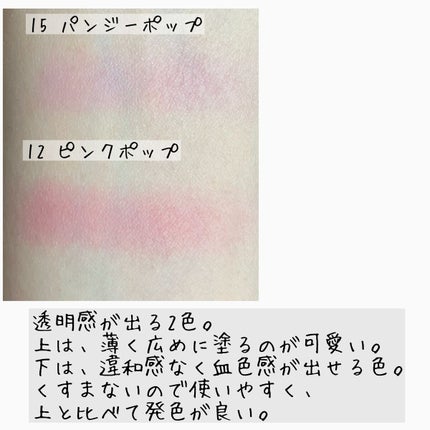 15 パンジーポップ
12 ピンクポップ
透明感が出る2色。
上は、薄く広めに塗るのが可愛い。
下は、違和感なく血色感が出せる色。
くすまないので使いやすく、
上と比べて発色が良い。